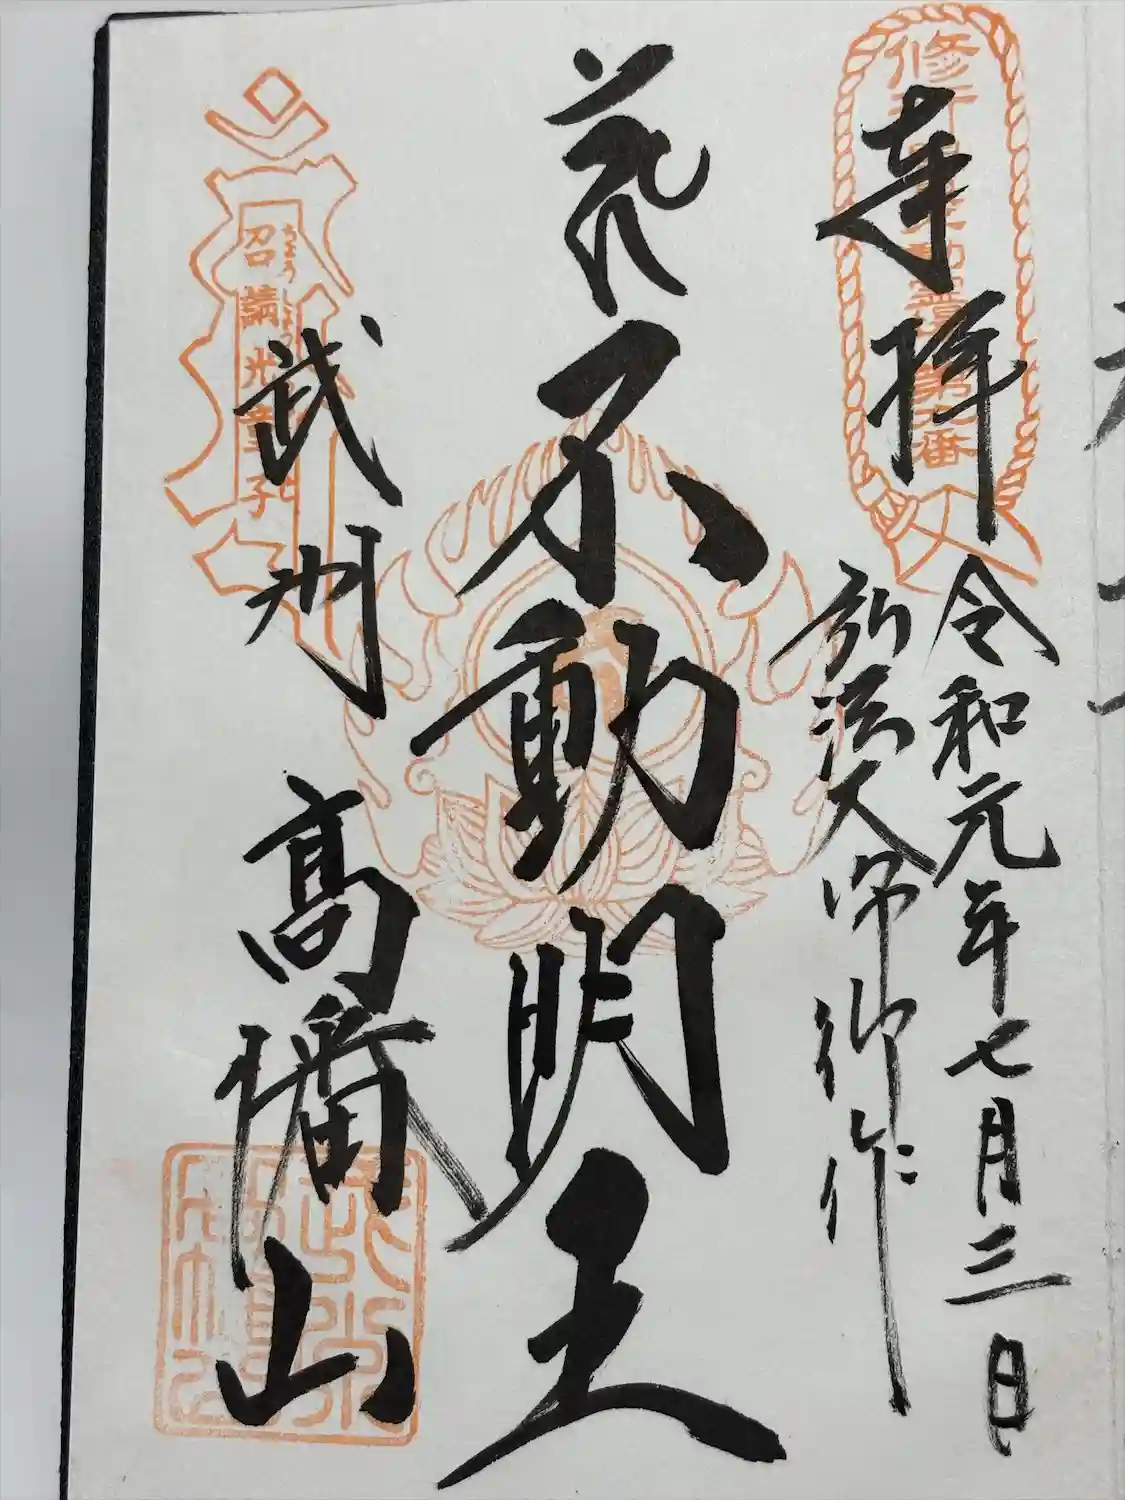 修行
霊場第九番
奉拝
令和元年七月三日
弘法大師御作
不動明王
召請光童子
武州
高幡山